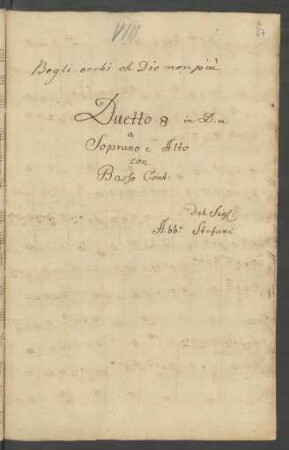 VIII
37
Begli occhi oh Dio non più
Duetto 8 in D. m
a
Soprano e Alto
con
Basso Cont:
del Sigl
Abb: Stefani